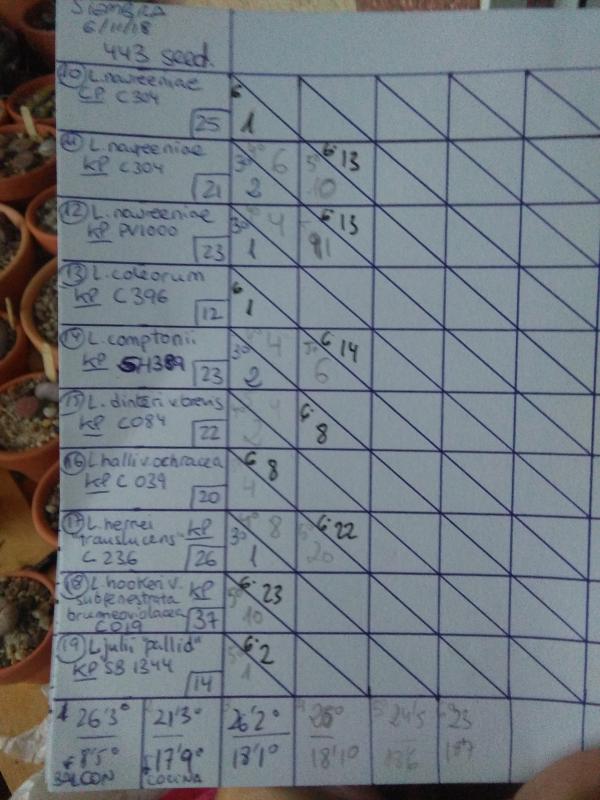 SIEMBRA
6/11/18
443 seed.
10 L. naureeniae
CP C304
25
6 1
11 L. naureeniae
KP C304
21
3º 4º 6
2
5º 6· 13
10
12 L. naureeniae
KP PV1000
23
3º 4
1
6· 13
13 L. coleorum
KP C396
12
6 1
14 L. comptonii
KP SH389
23
3º 4
2
6 14
6
15 L. dinteri v. brevis
KP C084
22
2
6· 8
16 L. halli v. ochracea
KP C 039
20
6 8
4
17 L. herrei KP
"translucens"
C 236
26
3º 4º 8
1
5º 6· 22
20
18 L. hookeri v. KP
subfenestrata
brunneoviolacea
C019
37
6· 23
5º 10
19 L. julii "pallid"
KP SB 1344
14
6· 2
5º 1
26'3º 21'3º 26'2º 26º 24'5 23
8'5º 17'9º 18'1º 18'1º 18'6
BALCON COCINA